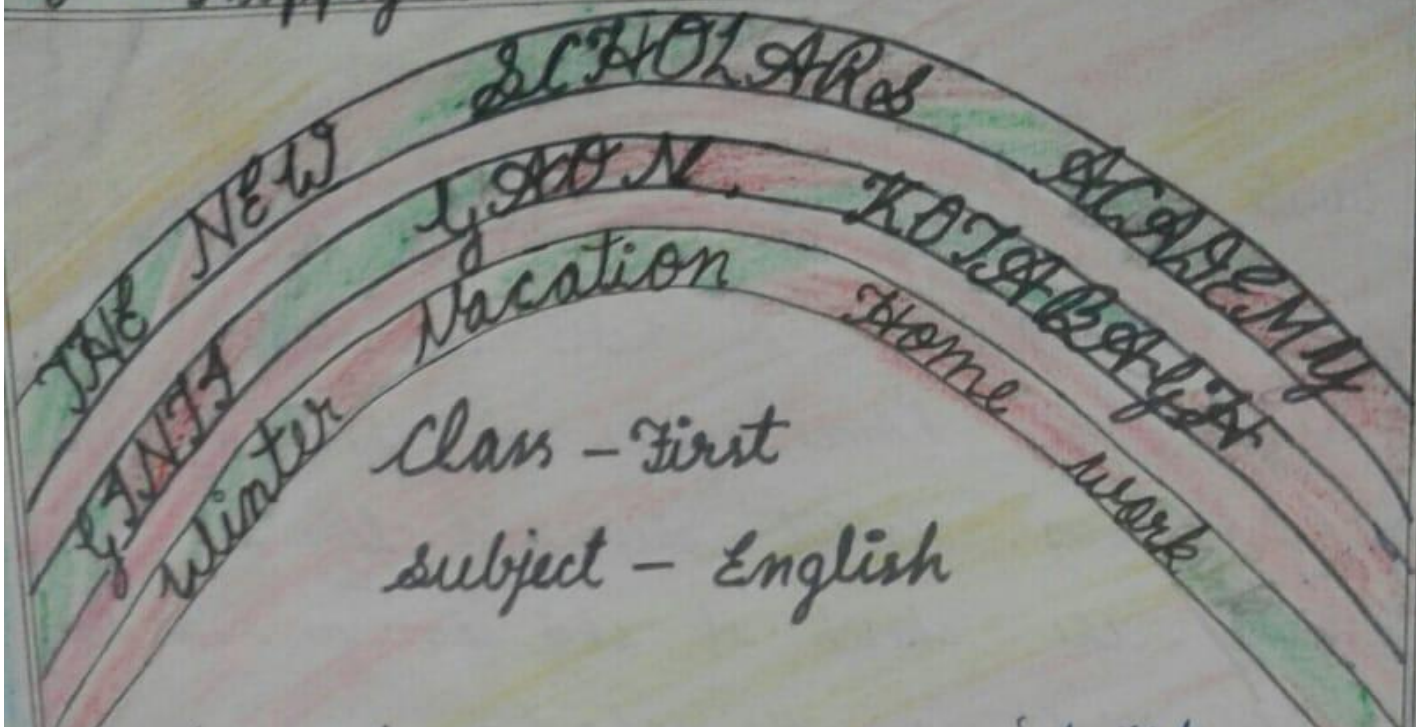 THE NEW SCHOLARS ACADEMY
GINTI GAON. KOTABAGH
Winter Vacation Home work
Class - First
Subject - English